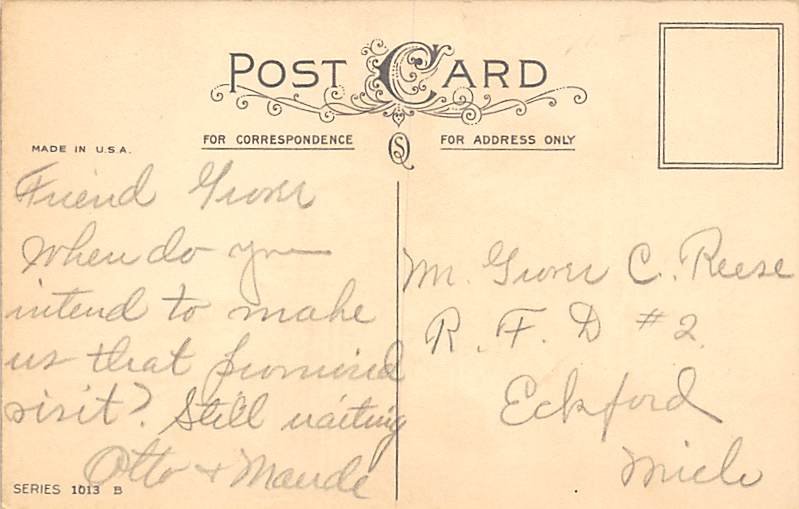 POST CARD
FOR CORRESPONDENCE
FOR ADDRESS ONLY
MADE IN U.S.A.
Friend Grover
When do you
intend to make
us that promised
visit? Still waiting
Otto + Maude
Mr. Grover C. Reese
R. F. D #2
Eckford
Mich
SERIES 1013 B